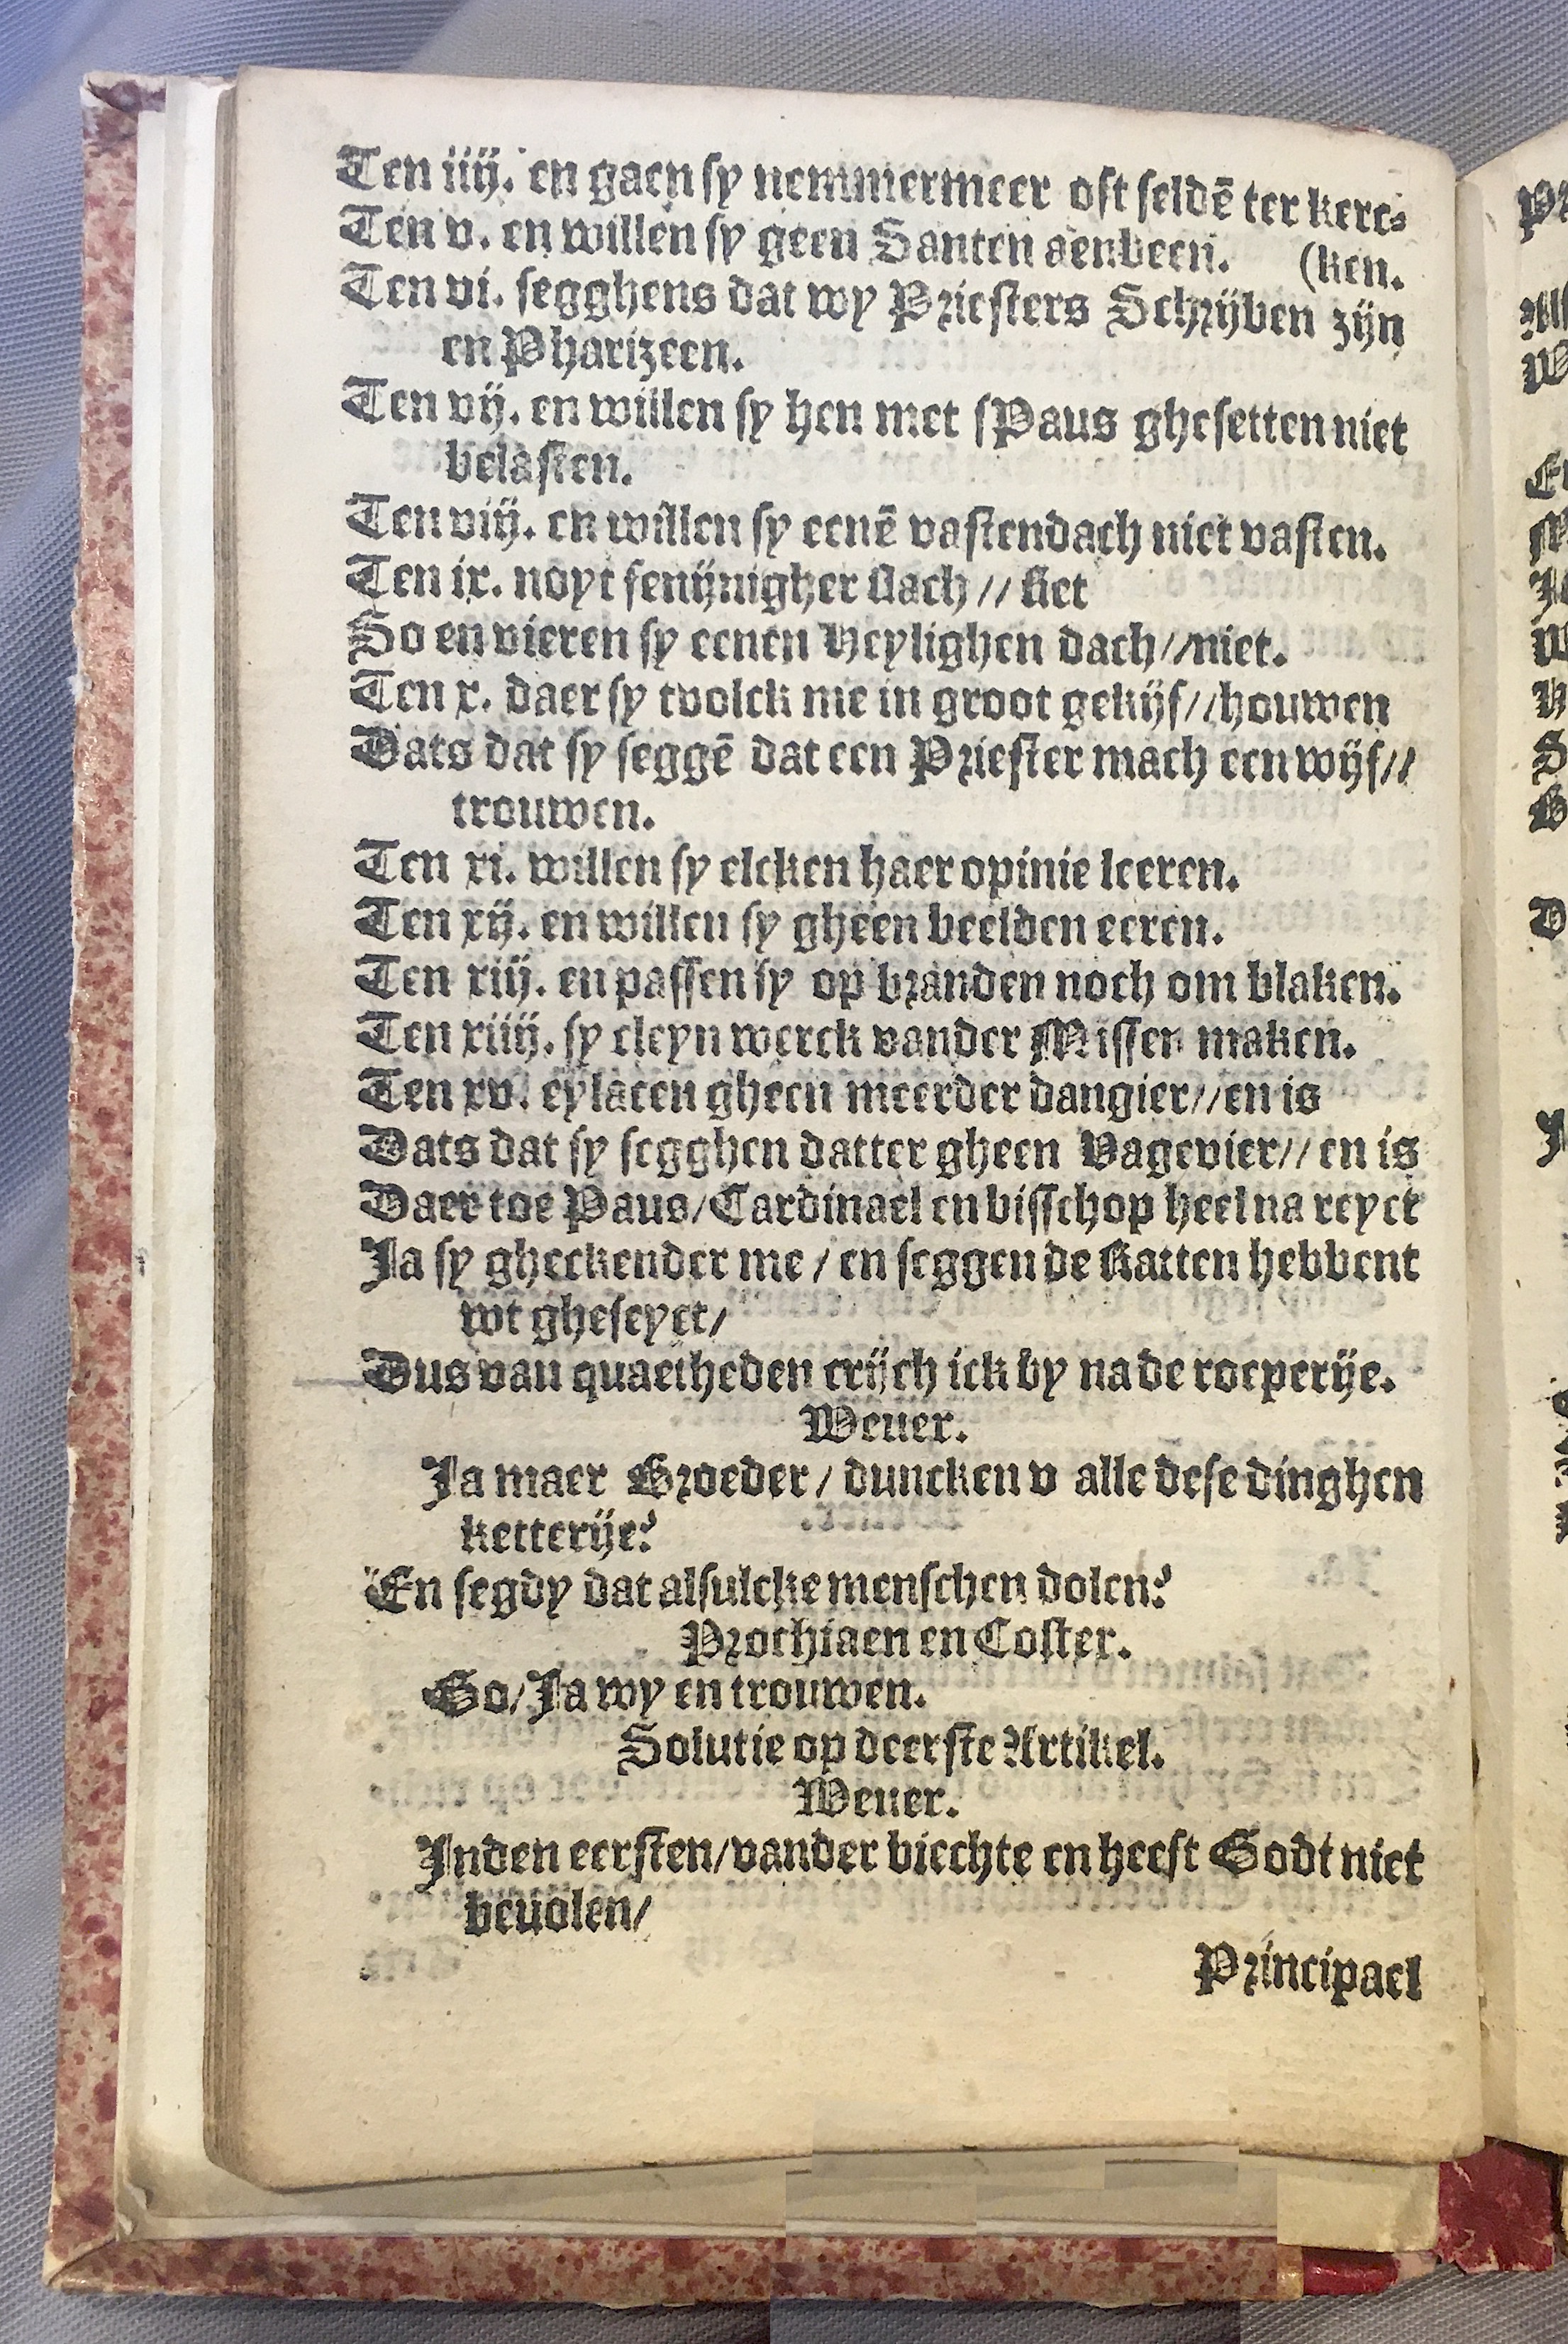 Ten iiij. en gaen sy nemmermeer oft seldē ter kerc-
Ten v. en willen sy geen Santen aenbeen. (ken.
Ten vi. segghens dat wy Priesters Schrijben zijn
en Pharizeen.
Ten vij. en willen sy hen met sPaus ghesetten niet
belasten.
Ten viij. en willen sy eenē vastendach niet vasten.
Ten ix. noyt fenijnigher slach // siet
So en vieren sy eenen Heylighen dach//niet.
Ten x. daer sy tvolck me in groot gekijf//houwen
Dats dat sy seggē dat een Priester mach een wijf//
trouwen.
Ten xi. willen sy elcken haer opinie leeren.
Ten xij. en willen sy gheen beelden eeren.
Ten xiij. en passen sy op branden noch om blaken.
Ten xiiij. sy cleyn werck vander Missen maken.
Ten xv. eylacen gheen meerder dangier//en is
Dats dat sy segghen datter gheen Vagevier//en is
Daer toe Paus/Cardinael en bisschop heel na reyct
Ja sy gheckender me / en seggen de Katten hebbent
wt gheseyct/
Dus van quaetheden crijch ick by na de roeperije.
Wever.
Ja maer Broeder / duncken v alle dese dinghen
ketterije?
En segdy dat alsulcke menschen dolen?
Prochiaen en Coster.
Go/Ja wy en trouwen.
Solutie op deerste Artikel.
Wever.
Inden eersten/vander biechte en heeft Godt niet
bevolen/
Principael